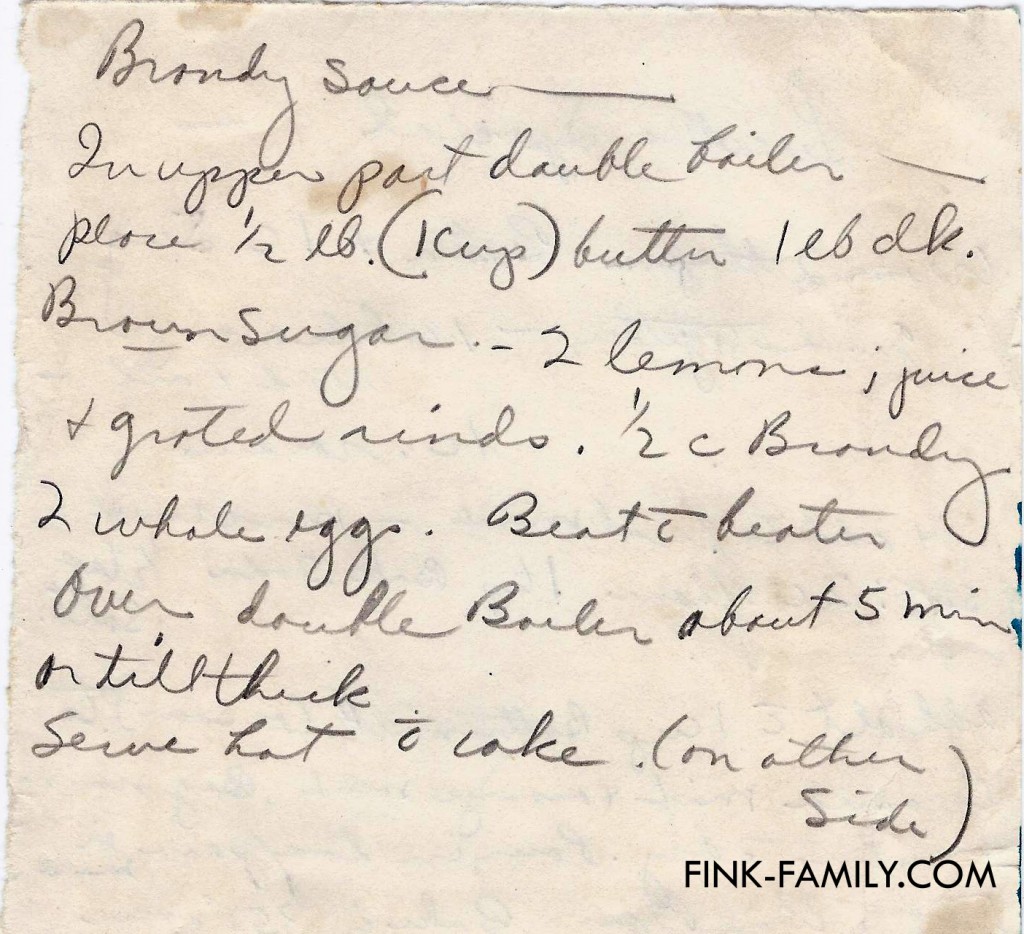 Brandy Sauce —
In upper part double boiler —
place ½ lb. (1 cup) butter 1 lb dk.
Brown Sugar. – 2 lemons ; juice
+ grated rinds. ½ c Brandy
2 whole eggs. Beat c̄ beater
Over double Boiler about 5 min
or till thick
Serve hot c̄ cake. (on other
Side)
FINK-FAMILY.COM